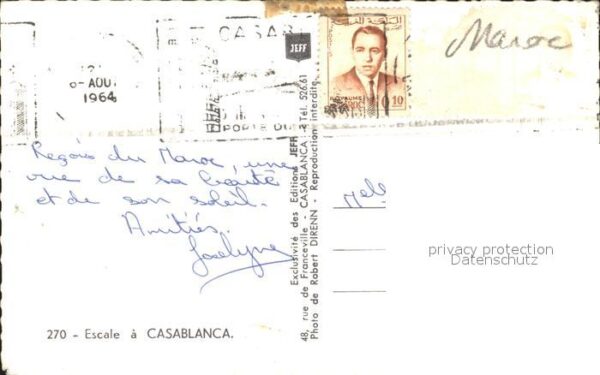 CASAB
AOU
1964
PORTE DU
JEFF
ROYAUME
MAROC
10
Maroc
Reçois du Maroc, une
vue de sa beauté
et de son soleil.
Amitiés.
Joselyne
Melle
privacy protection
Datenschutz
Exclusivité des Editions JEFF
48, rue de Franceville - CASABLANCA - Tél. 526.61
Photo de Robert DIRENN - Reproduction interdite
270 - Escale à CASABLANCA.